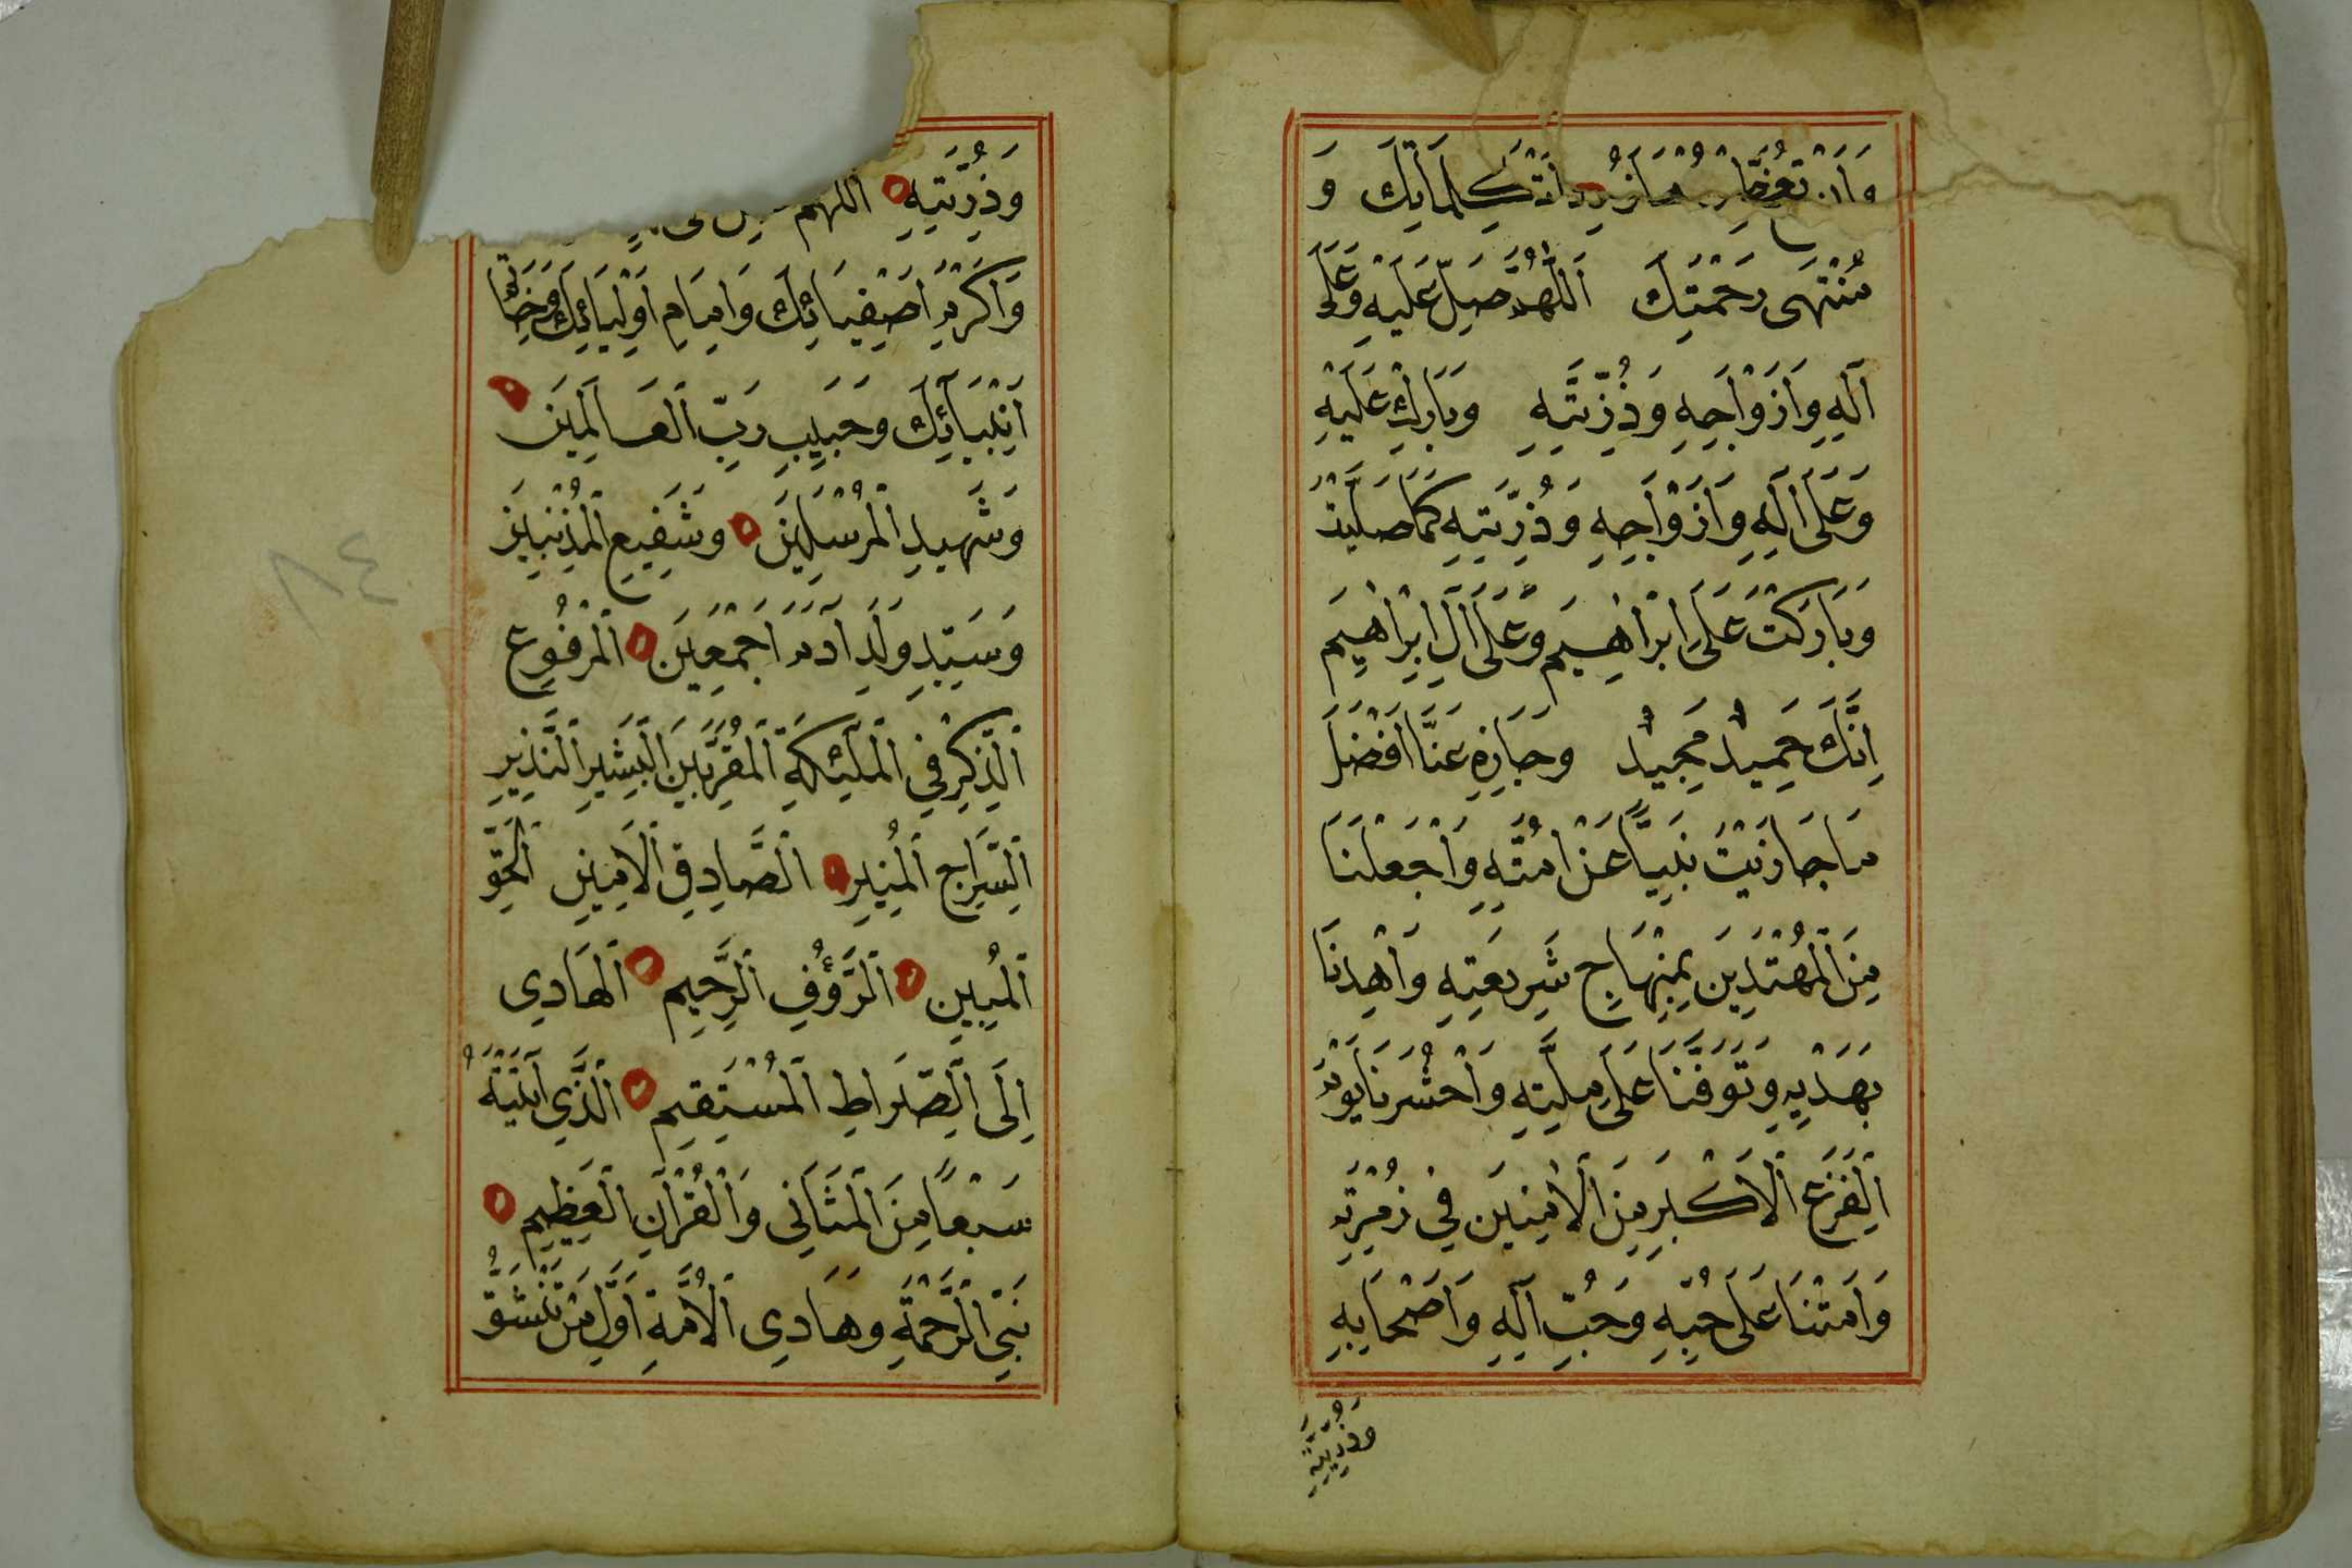 كلماتك و
منتهى رحمتك اللهم صل عليه وعلى
آله وازواجه وذريته وبارك عليه
وعلى اله وازواجه وذريته كما صليت
وباركت على ابراهيم وعلى ال ابراهيم
انك حميد مجيد وجازه عنا افضل
ما جازيت نبيا عن امته واجعلنا
من المهتدين بمنهاج شريعته واهدنا
بهديه وتوفنا على ملته واحشرنا يوم
الفزع الاكبر من الامنين في زمرته
وامتنا على حبه وحب آله واصحابه
وذريته
وذريته اللهم
واكرم اصفيائك وامام اوليائك وخاتم
انبيائك وحبيب رب العالمين
وشهيد المرسلين وشفيع المذنبين
وسيد ولد آدم اجمعين المرفوع
الذكر في الملئكة المقربين البشير النذير
السراج المنير الصادق الامين الحق
المبين الرؤف الرحيم الهادي
الى الصراط المستقيم الذي آتيته
سبعا من المثاني والقرآن العظيم
نبي الرحمة وهادي الامة اول من تنشق
٨٤